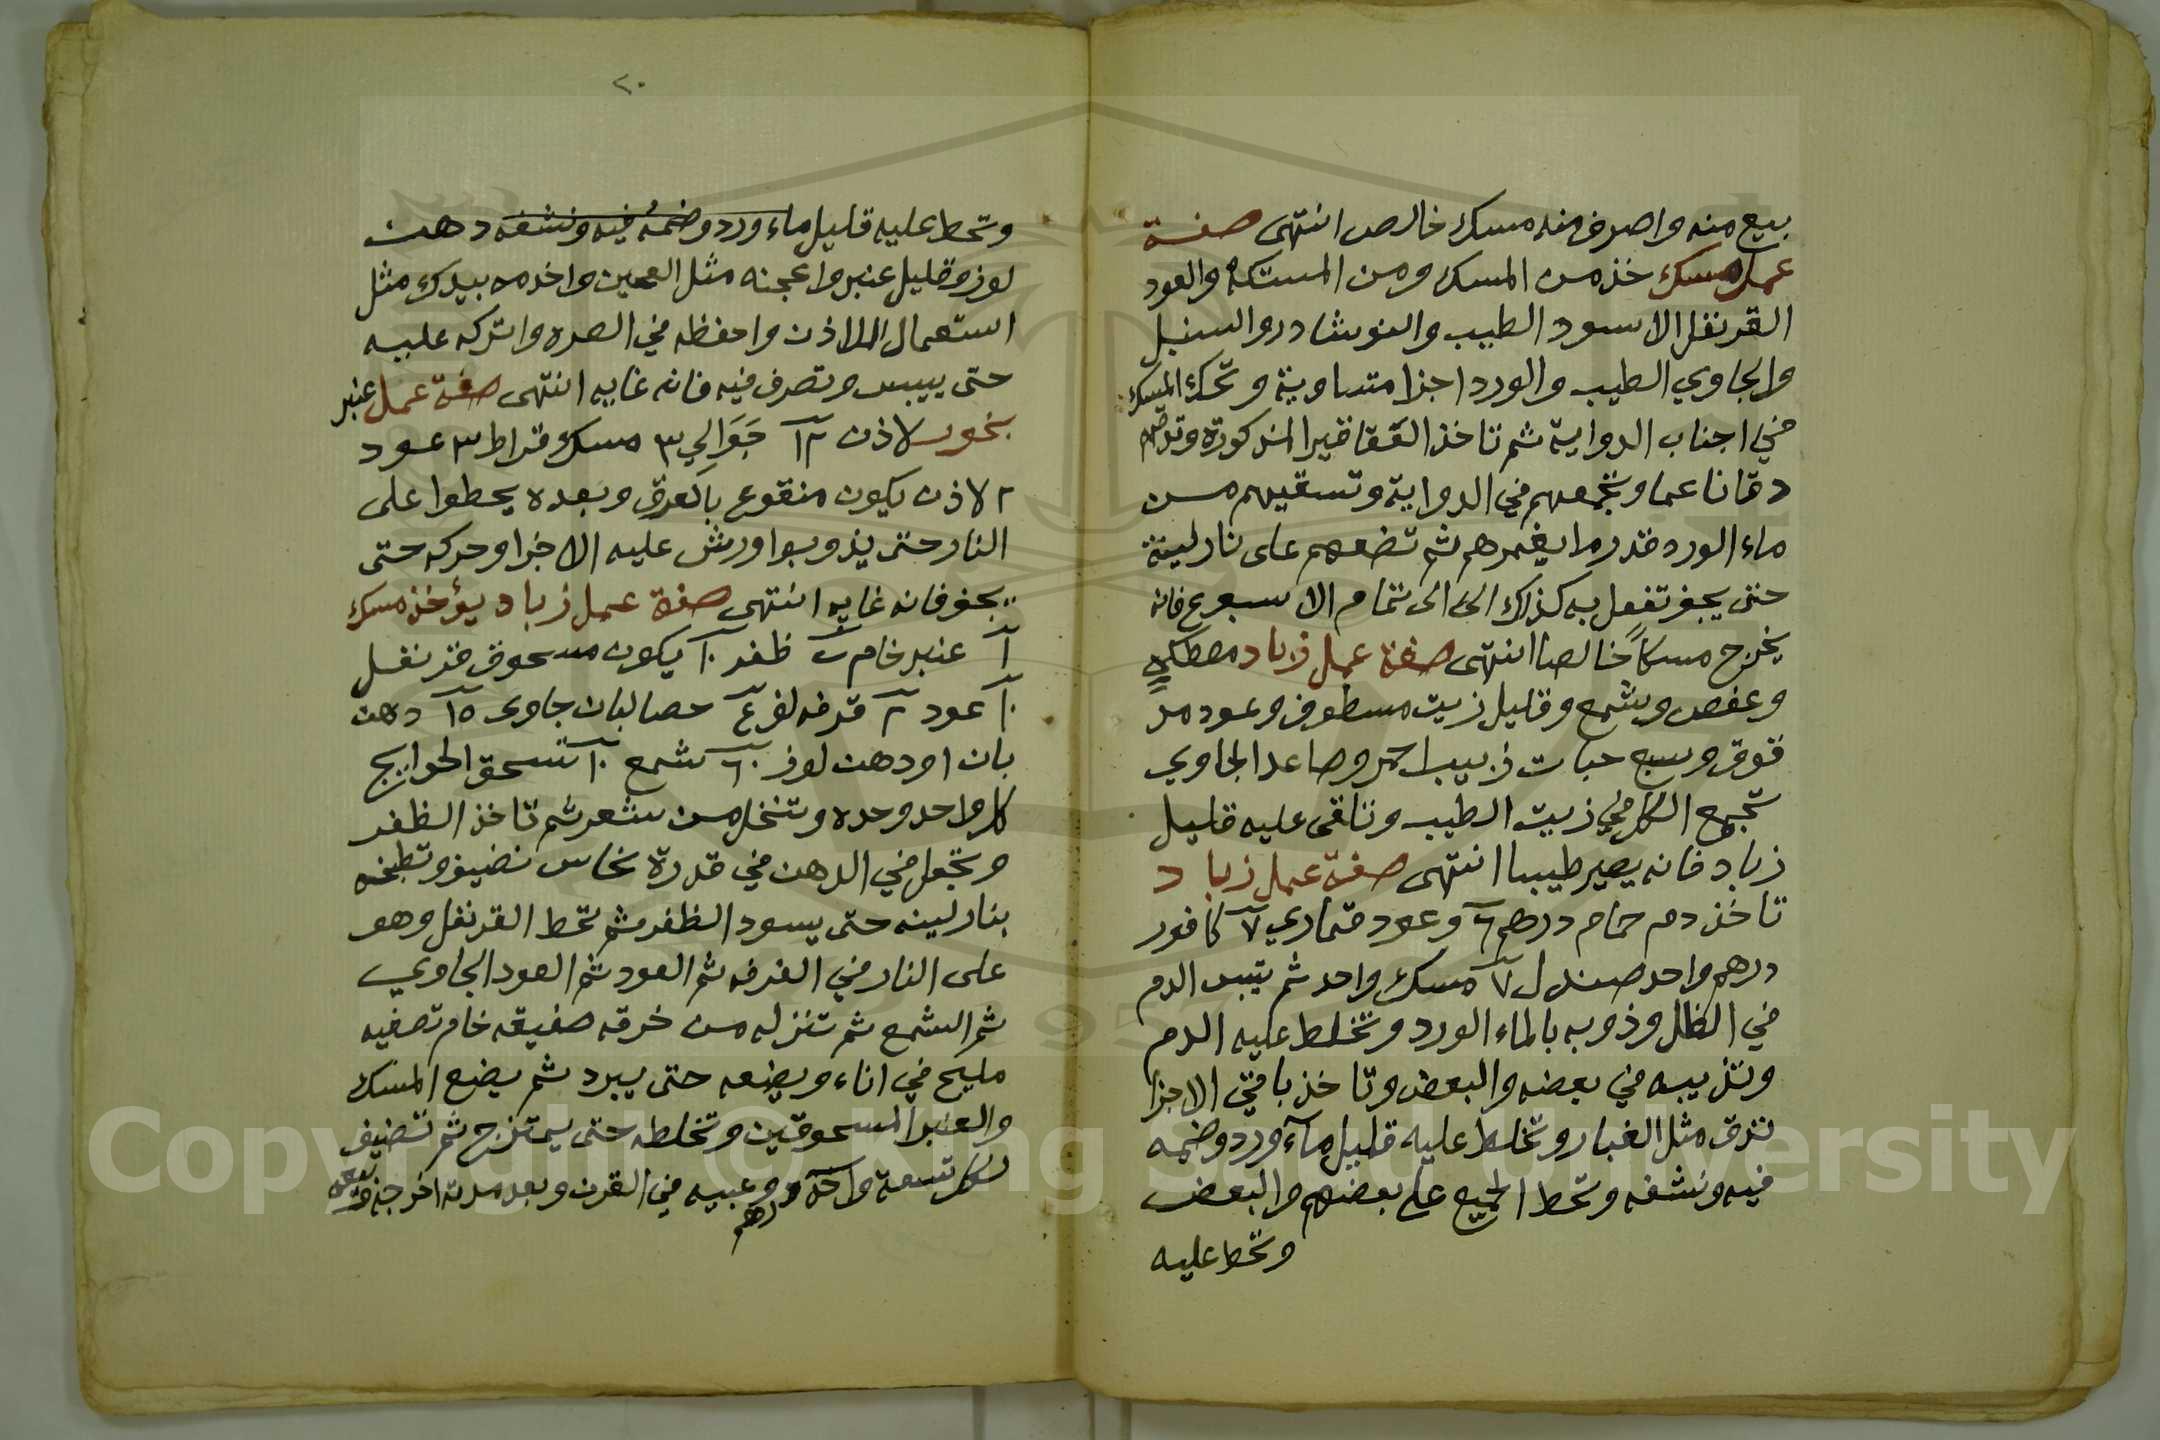 بيع منه واصرف منه مسك خالص انتهى صفة
عمل مسك خذ من المسك ومن المستكه والعود
القرنفل الاسود الطيب والنوشادر والسنبل
والجاوي الطيب والورد اجزا متساوية وتحك المسك
في اجناب الدواية ثم تاخذ العقاقير المذكورة وتدقهم
دقا ناعما وتجمعهم في الدواية وتسقيهم من
ماء الورد قدر ما يغمرهم ثم تضعهم على نار لينة
حتى يجف تفعل به كذلك الى تمام الاسبوع فانه
يخرج مسكاً خالصا انتهى صفة عمل زباد مصطكى
وعفص وشمع وقليل زيت مسطوف وعود مد
قوق وسبع حبات زبيب احمر وصاعد الجاوي
تجمع الكل في زيت الطيب وتلقى عليه قليل
زباد فانه يصير طيبا انتهى صفة عمل زباد
تاخذ دم حمام درهم ٦ وعود قماري ٧ كافور
درهم واحد صندل ٧ مسك واحد ثم تيبس الدم
في الظل وذوبه بالماء الورد وتخلط عليه الدم
وتذيبه في بعضه والبعض وتاخذ باقي الاجزا
تدق مثل الغبار وتخلط عليه قليل مآء ورد وضمه
فيه ونشفه وتحط الجميع على بعضهم والبعض
وتحط عليه
٢٠
وتحط عليه قليل ماء ورد وضمه فيه ونشفه دهن
لوز وقليل عنبر واعجنه مثل العجين واخدمه بيدك مثل
استعمال اللاذن واحفظه في الصره واتركه علبيه
حتى ييبس وتصرف فيه فانه غايه انتهى صفة عمل عنبر
بخور لاذن ١٢ جَوَالي ٣ مسك قراط ٣ عود
٢ لاذن يكون منقوع بالعرق وبعده يحطوا على
النار حتى يذوبوا ورش عليه الاجزا وحركه حتى
يجف فانه غايه انتهى صفة عمل زباد يؤخذ مسك
١ عنبر خام ظفر ١٠ يكون مسحوق قرنفل
١٠ عود ٢ قرفه لف ٤ حصالبان جاوى ١٥ دهن
بان او دهن لوز ٦٠ شمع ١٠ تسحق الحوايج
كل واحد وحده وتنخل من شعر ثم تاخذ الظفر
وتجعل في الدهن في قدرة نحاس نضيف وتطبخه
بنار لينه حتى يسود الظفر ثم تحط القرنفل وهو
على النار في القرفه ثم العود ثم العود الجاوي
ثم الشمع ثم تنزله من خرقه صفيقه خام تصفيه
مليح في اناء ويضعه حتى يبرد ثم يضع المسك
والعنبر المسحوقين وتخلطه حتى يمتزج ثم تضيف
لكل تسعة واحد درهم وعبيه في القرن وبعد مدة اخرجه وبعه
Copyright © King Saud University